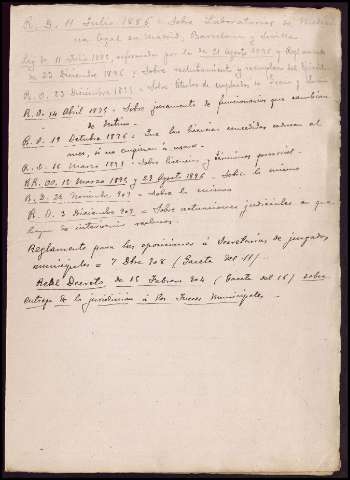 R. D. 11 Julio 1886 = Sobre Laboratorios de Medici
na legal en Madrid, Barcelona y Sevilla
Ley de 11 Julio 1885, reformada por la de 21 Agosto 1896 y Reglamento
de 23 Diciembre 1896 = Sobre reclutamiento y reemplazo del Ejército
R. O. 23 Diciembre = Sobre títulos de empleados de
R. O. 14 Abril 1875 = Sobre juramento de funcionarios que cambian
de destino.
R. O. 19 Octubre 1876 = Que las licencias concedidas caducan al
mes, si no empiezan á usarse.
R. O. 16 Marzo = Sobre licencias y términos posesorios.
RR. OO. 12 Marzo 1895 y 23 Agosto 1896 = Sobre lo mismo
R. D. 24 Noviembre 903 = Sobre lo mismo
R. O. 3 Diciembre 903 = Sobre actuaciones judiciales a que
hayan de intervenir
Reglamento para las oposiciones á Secretarías de juzgados
municipales = 7 Dbre 908 (Gaceta del 11)
Real Decreto de 15 Febrero 904 (Gaceta del 16) sobre
entrega de la jurisdicción á los Jueces Municipales.